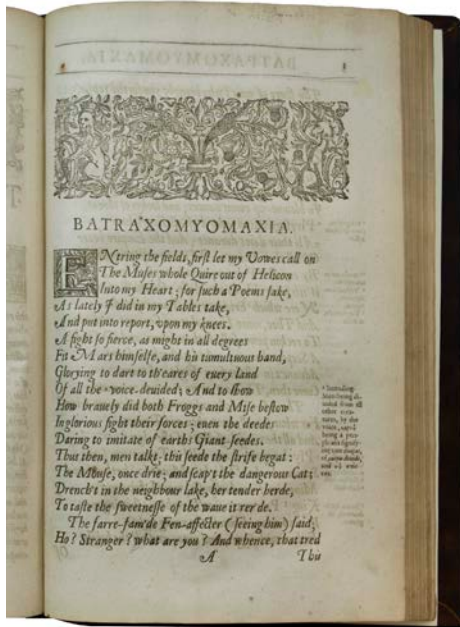 BATRAXOMYOMAXIA.
ENtring the fields, first let my Vowes call on
The Muses whole Quire out of Helicon
Into my Heart; for such a Poems sake,
As lately I did in my Tables take,
And put into report, vpon my knees.
A fight so fierce, as might in all degrees
Fit Mars himselfe, and his tumultuous hand,
Glorying to dart to th'eares of euery land
Of all the voice-deuided; And to show
How brauely did both Froggs and Mise bestow
Inglorious fight their forces; euen the deedes
Daring to imitate of earths Giant seedes.
Thus then, men talkt; this seede the strife begat:
The Mouse, once drie; and scap't the dangerous Cat;
Drench't in the neighbour lake, her tender berde,
To taste the sweetnesse of the waue it rer'de.
The farre-fam'de Fen-affecter (seeing him) said;
Ho? Stranger? what are you? And whence, that tred
Intending
men being di-
uided from all
other crea-
tures, by the
voice
being a
A
This